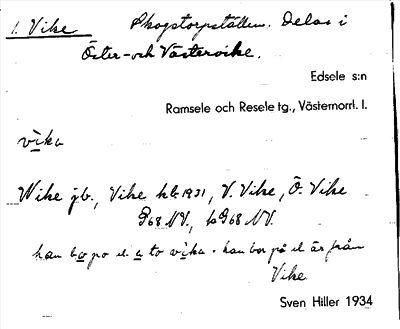 1. Vike Skogstorpställen. Delas i
Öster- och Västervike.
Edsele s:n
Ramsele och Resele tg., Västernorrl. l.
vìka
Wike jb., Vike kb 1931, V. Vike, Ö. Vike
G68 NV., bG68 NV.
han bor på el. är från
Vike
Sven Hiller 1934